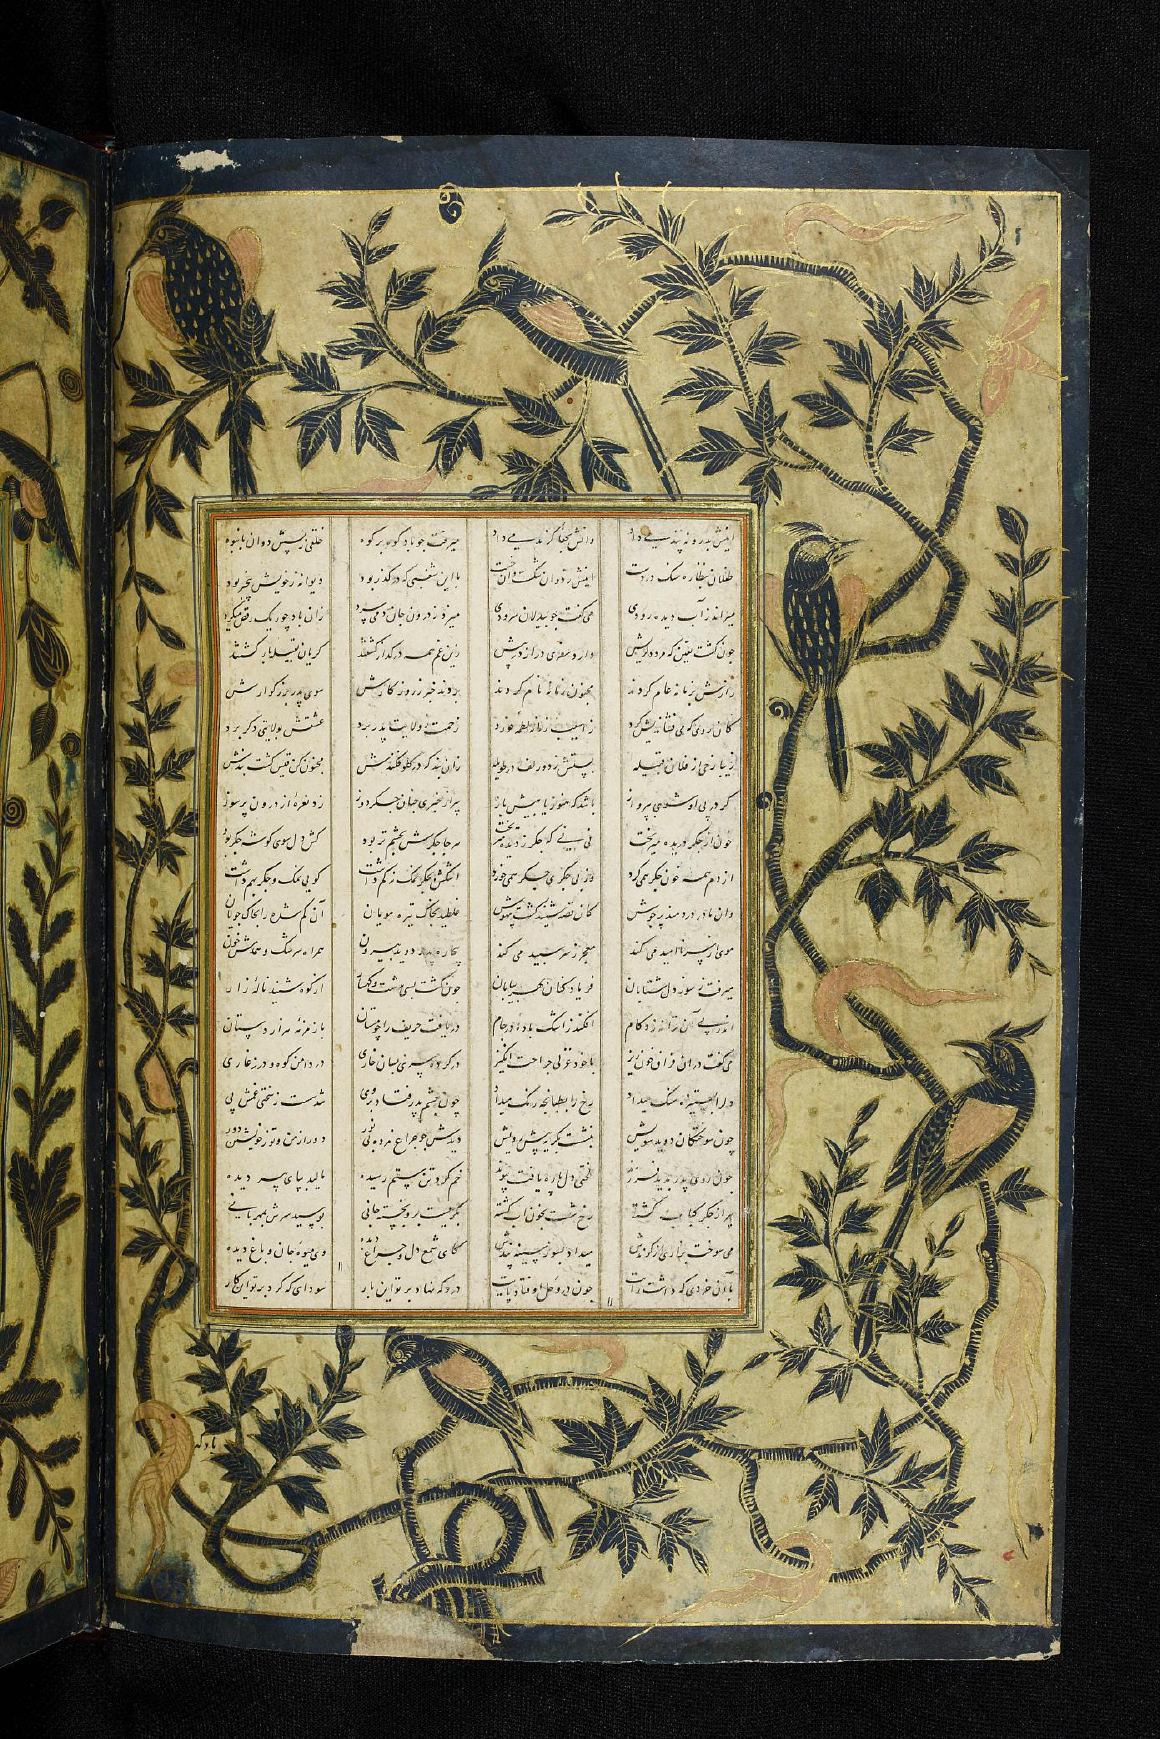 اینش بدر و نه پند می داد دانش بخطا گزند می داد میرفت جو باد کوه بر کوه خلقی ز پسش دوان بانبوه
طفلان نظاره سنک در دست اینش زد و آن شکست و آن خست با این شغبی که در گذر بود دیوانه ز خویش بیخبر بود
میراند ز آب دیده رودی می گفت جو بیدلان سرودی میزد ز درون جان دمی سرد زان باد جو ریک رقص میکرد
چون گشت یقین که مرد درویش دارد سفری دراز در پیش زین غم همه در گداز گشتند گریان بقبیله باز گشتند
رازش بزمانه عام کردند مجنون زمانه نام کردند بردند خبر ز روزگارش سوی پدر بزرگوارش
ز آسیب زمانه لطمه خورد زحمت ز ولایت پدر برد عشقش بولایتی دگر برد
زیبا رخی از فلان قبیله بستش ز دو زلف در طویله زان بند که در گلو فکندش مجنون کن قیس گشت بندش
گر در پی او شوی بپرواز باشد که هنوز یابیش باز پیر از خبری چنان جگردوز زد نعره از درون پرسوز
خونی ز جگر ز دیده میریخت نی نی که جگر ز دیده میریخت هر جا جگریش بچشم تر بود کش دل سوی گوشه جگر بود
از دم همه خون جگر همی کرد وز بی جگری جگر همی خورد گویی نمک و جگر بهم داشت
وان مادر دردمند پرجوش کان قصه شنید گشت بیهوش غلطید بخاک تیره مویان آن گم شده را بخاک جویان
موی از سر ناامید می کند معجر ز سر سپید می کند بیچاره پدر دوید بیرون همراه سرشک و همدمش خون
میرفت بسوز دل شتابان فریاد کنان بهر بیابان چون گشت بسی بدشت و کهسار از کوه شنید ناله زار
اندر پی آن ترانه زد گام افکند ز اشک باده در جام دریافت حریف را چو مستان
می گفت در آن فراق خون ریز با خود غزلی جراحت انگیز در کرده سری بسان خاری در دامن کوه و درز غاری
سنک میداد رخ را بطپانچه رنک میداد چون چشم پدر فتاد بر وی شد سست ز سختی غمش پی
چون سوختگان دوید سویش بنشست بگریه پیش رویش دیدش چو چراغ مرده بی نور دور از من و تو ز خویشتن دور
چون روی پدر بدید فرزند لختی دل پاره یافت پیوند خم کرد تن ستم رسیده مالید بپای پیر دیده
رخ شست بخون آب گشته بگریست برو بخسته جانی بوسید سرش بمهربانی
می سوخت میداد بسوز سینه پندش کای شمع دل و چراغ دیده وی میوه جان و باغ دیده
با آن خردی که داشت رایت چون در وحل اوفتاد پایت دردت که نهاد بر تو این بار سودای که کرد بر تو این کار